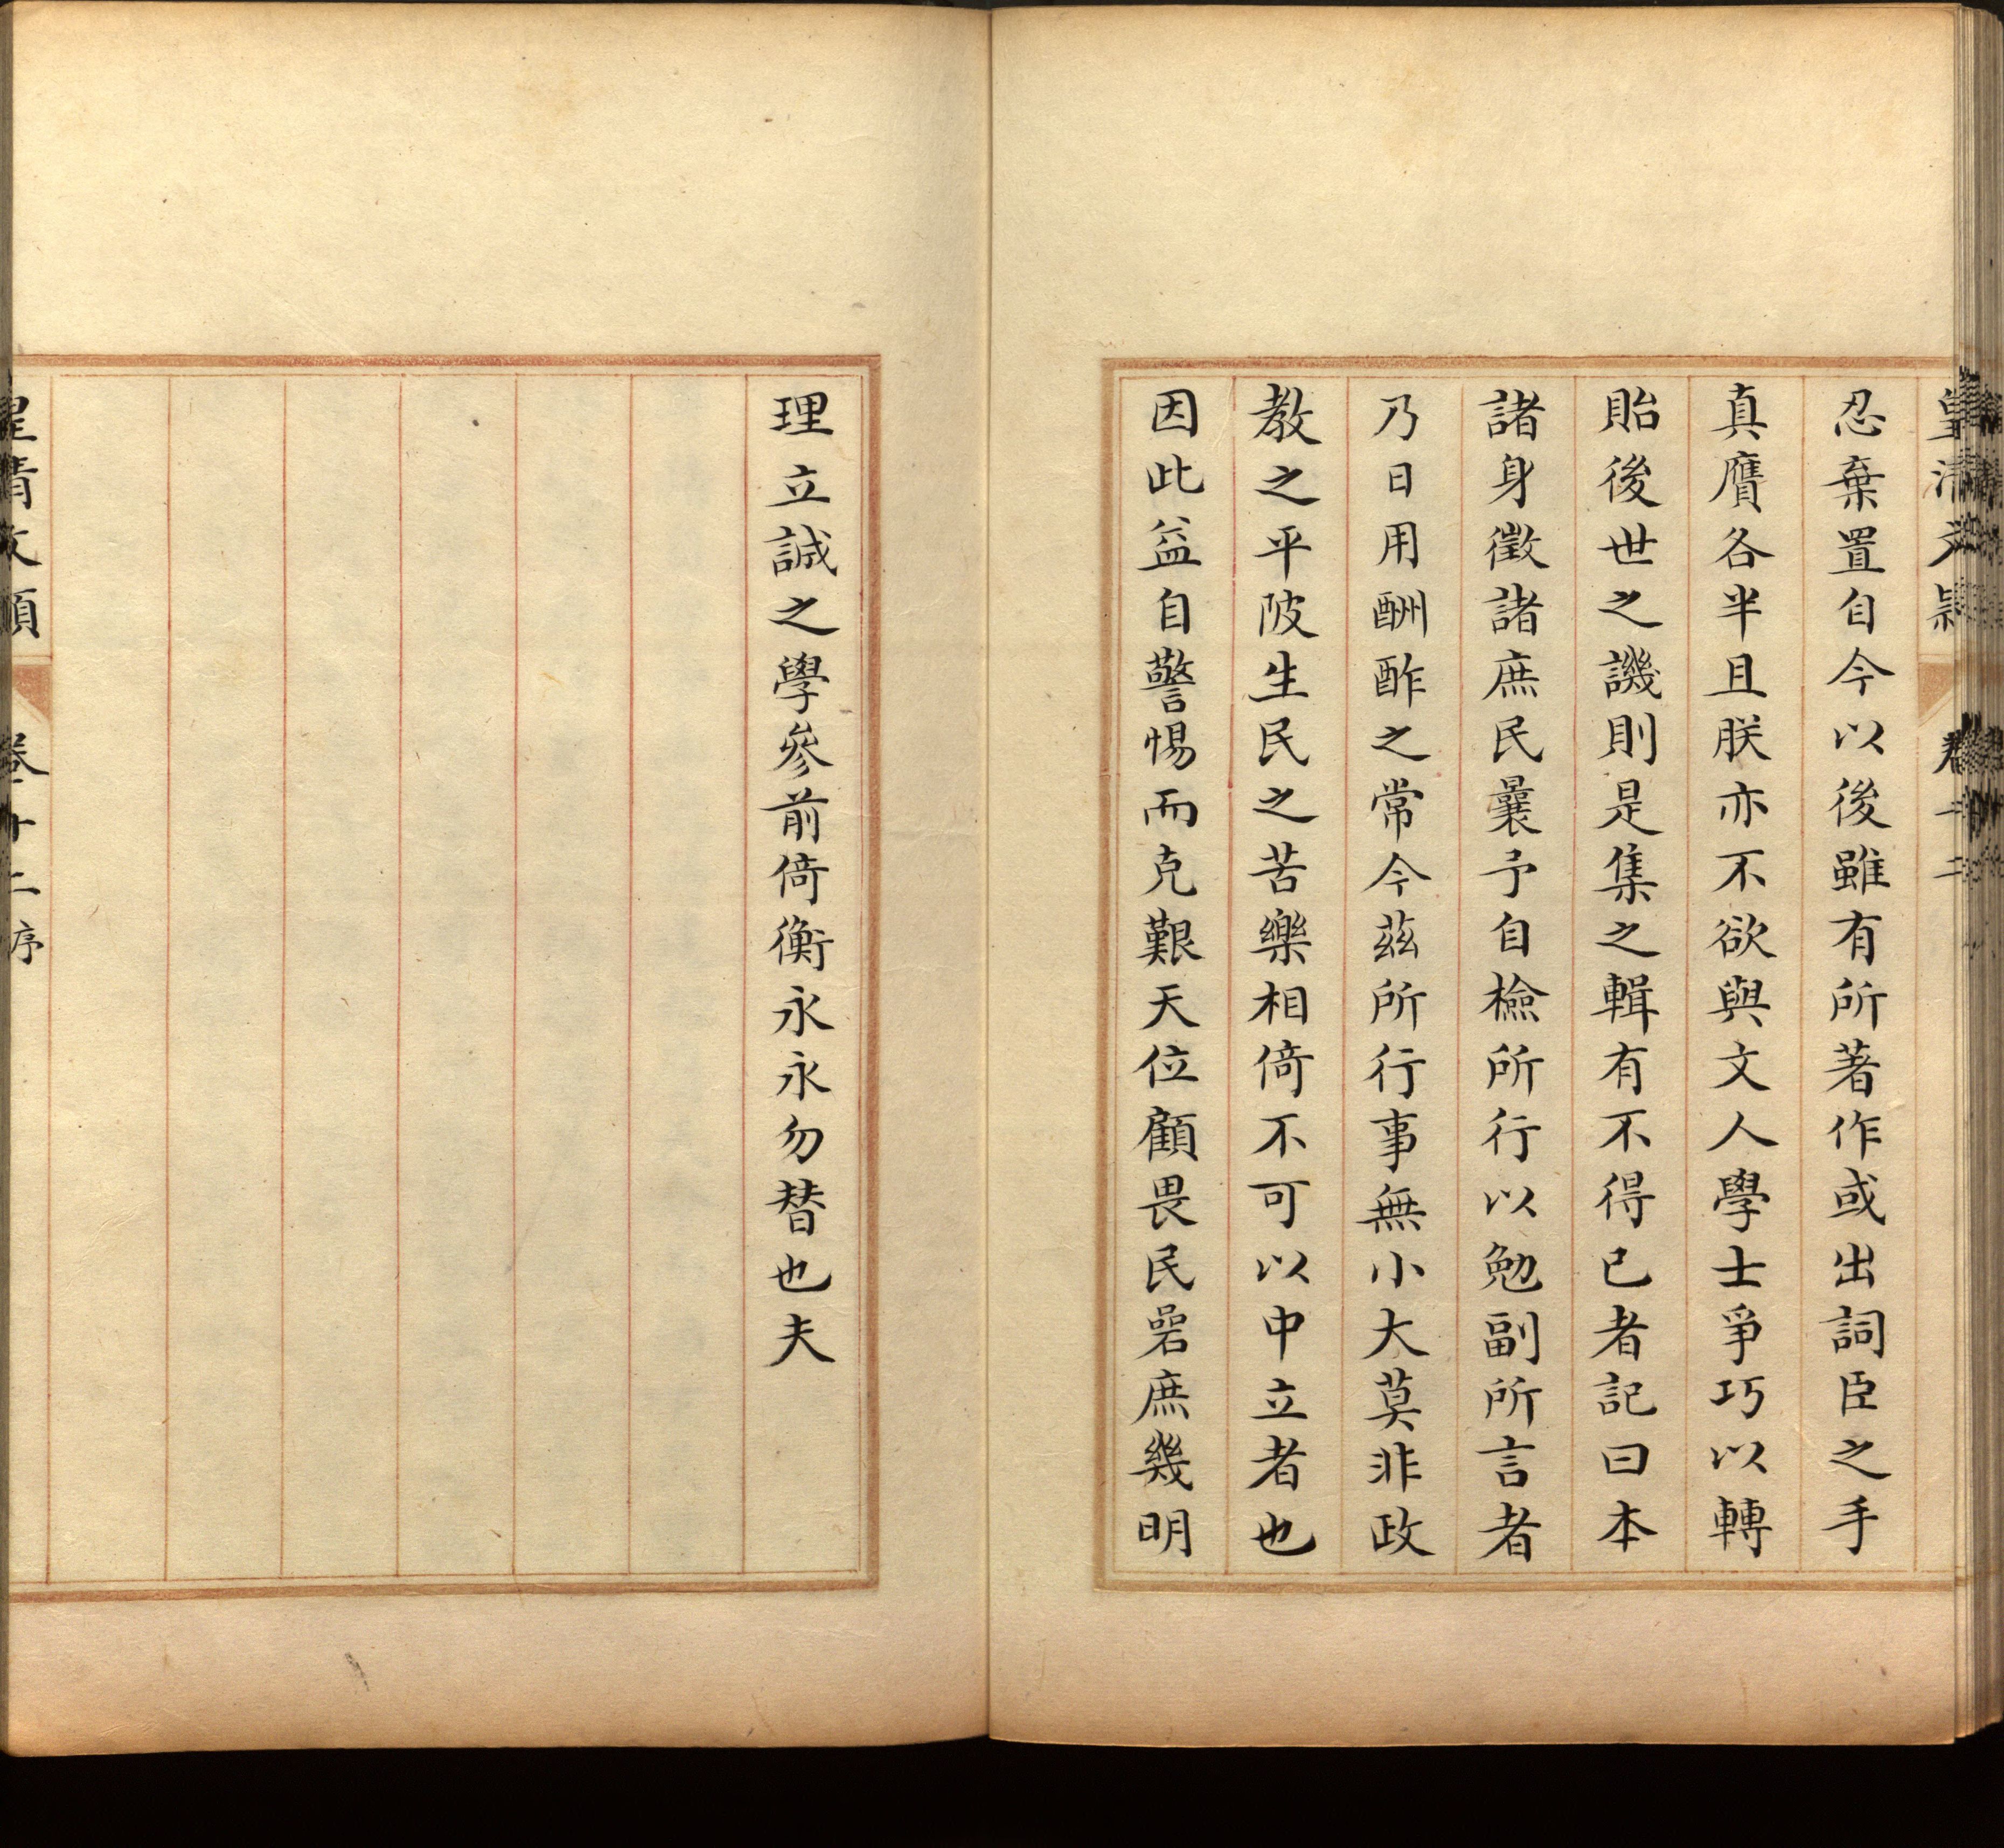 皇清文穎 卷十二
忍棄置自今以後雖有所著作或出詞臣之手
真贗各半且朕亦不欲與文人學士爭巧以轉
貽後世之譏則是集之輯有不得已者記曰本
諸身徵諸庶民曩予自檢所行以勉副所言者
乃日用酬酢之常今茲所行事無小大莫非政
教之平陂生民之苦樂相倚不可以中立者也
因此益自警惕而克艱天位顧畏民碞庶幾明
理立誠之學參前倚衡永永勿替也夫
皇清文穎 卷十二 序